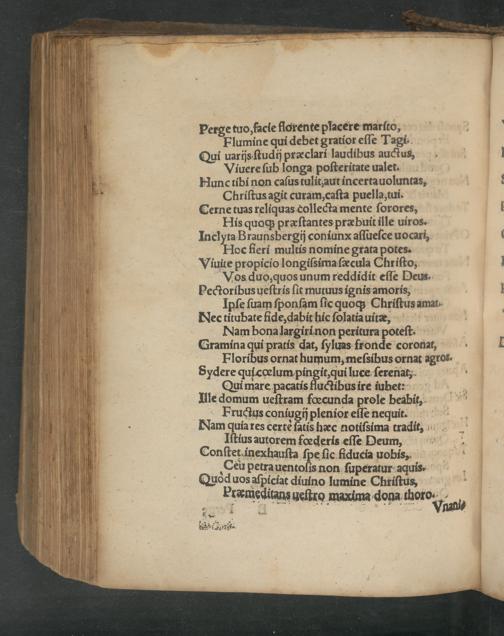 Perge tuo, facie florente placere marito,
Flumine qui debet gratior esse Tagi.
Qui uarijs studij præclari laudibus auctus,
Viuere sub longa posteritate ualet.
Hunc tibi non casus tulit, aut incerta uoluntas,
Christus agit curam, casta puella, tui.
Cerne tuas reliquas collecta mente sorores,
His quoq; præstantes præbuit ille uiros.
Inclyta Braunsbergij coniunx assuesce uocari,
Hoc fieri multis nomine grata potes.
Viuite propicio longissima sæcula Christo,
Vos duo, quos unum reddidit esse Deus.
Pectoribus uestris sit mutuus ignis amoris,
Ipse suam sponsam sic quoq; Christus amat.
Nec titubate fide, dabit hic solatia uitæ,
Nam bona largiri non peritura potest.
Gramina qui pratis dat, syluas fronde coronat,
Floribus ornat humum, messibus ornat agros.
Sydere qui cœlum pingit, qui luce serenat,
Qui mare pacatis fluctibus ire iubet:
Ille domum uestram fœcunda prole beabit,
Fructus coniugij plenior esse nequit.
Nam quia res certè satis hæc notissima tradit,
Istius autorem fœderis esse Deum,
Constet inexhausta spe sic fiducia uobis,
Ceu petra uentosis non superatur aquis.
Quòd uos aspiciat diuino lumine Christus,
Præmeditans uestro maxima dona thoro.
Vnani⸗